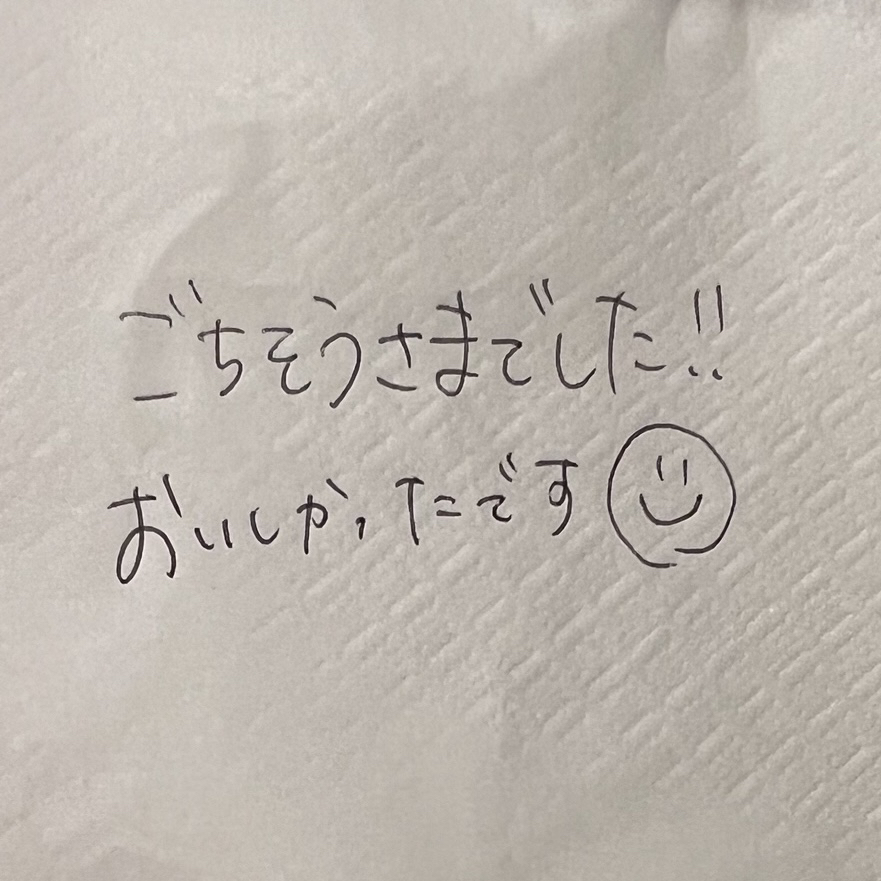 ごちそうさまでした!!
おいしかったです